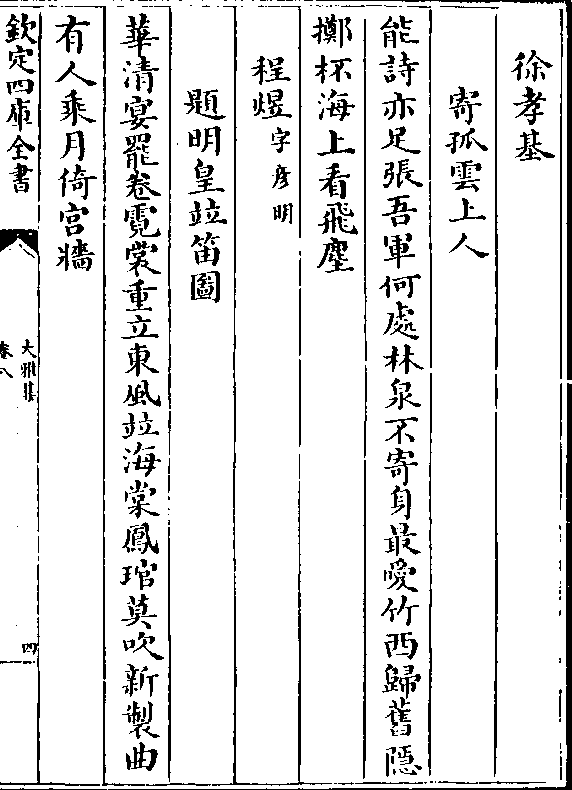 徐孝基
寄孤雲上人
能詩亦足張吾軍何處林泉不寄身最愛竹西歸舊隱
擲杯海上看飛塵
程煜字彦明
題明皇竝笛圖
華清宴罷卷霓裳重立東風竝海棠鳳琯莫吹新製曲
有人乘月倚宫牆
欽定四庫全書
大雅集
卷八
四